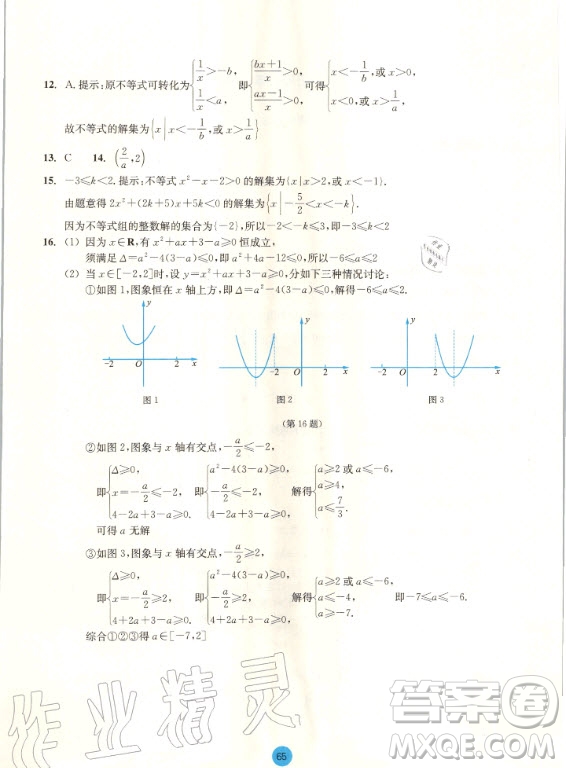 12. A. 提示:原不等式可转化为{1/x>-b, 1/x<a, 即{(bx+1)/x>0, (ax-1)/x>0, 可得{x<-1/b,或x>0, x<0,或x>1/a,
故不等式的解集为{x|x<-1/b,或x>1/a}
13. C 14. (2/a,2)
15. -3≤k<2.提示:不等式x²-x-2>0的解集为{x|x>2,或x<-1}.
由题意得2x²+(2k+5)x+5k<0的解集为{x|-5/2<x<-k}
因为不等式组的整数解的集合为{-2},所以-2<-k≤3,即-3≤k<2
16. (1) 因为x∈R,有x²+ax+3-a≥0恒成立,
须满足Δ=a²-4(3-a)≤0,即a²+4a-12≤0,所以-6≤a≤2
(2) 当x∈[-2,2]时,设y=x²+ax+3-a,分如下三种情况讨论:
①如图1,图象恒在x轴上方,即Δ=a²-4(3-a)≤0,解得-6≤a≤2.
y -2 O 2 x
y -2 O 2 x
y O 2 x
图1 图2 图3
(第16题)
②如图2,图象与x轴有交点,-a/2≤-2,
即{Δ≥0, x=-a/2≤-2, 4-2a+3-a≥0. 即{a²-4(3-a)≥0, -a/2≤-2, 4-2a+3-a≥0. 解得{a≥2或a≤-6, a≥4, a≤7/3.
可得a无解
③如图3,图象与x轴有交点,-a/2≥2,
即{Δ≥0, x=-a/2≥2, 4+2a+3-a≥0. 即{a²-4(3-a)≥0, -a/2≥2, 4+2a+3-a≥0. 解得{a≥2或a≤-6, a≤-4, a≥-7. 即-7≤a≤-6.
综合①②③得a∈[-7,2]
作业精灵
答案圈
MXQE.COM
65